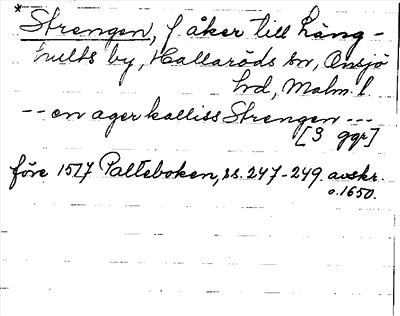 *
Strengen, f. åker till Lång-
hults by, Hallaröds sn, Onsjö
hd, Malm. l.
-- en ager kalliss Strengen ---
[3 ggr]
före 1517 Palteboken, ss. 247-249. avskr.
o. 1650.